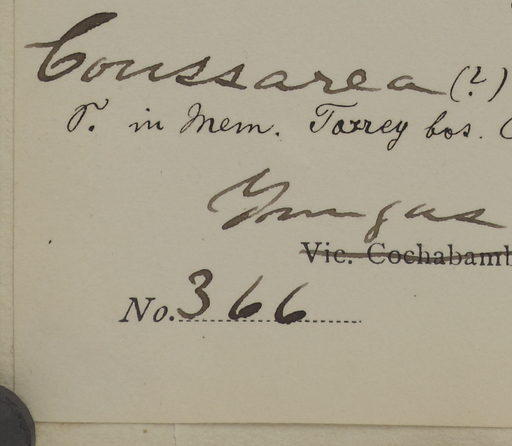 Coussarea (?)
T. in Mem. Torrey bos.
Yungas
Vic. Cochabamb
No. 366